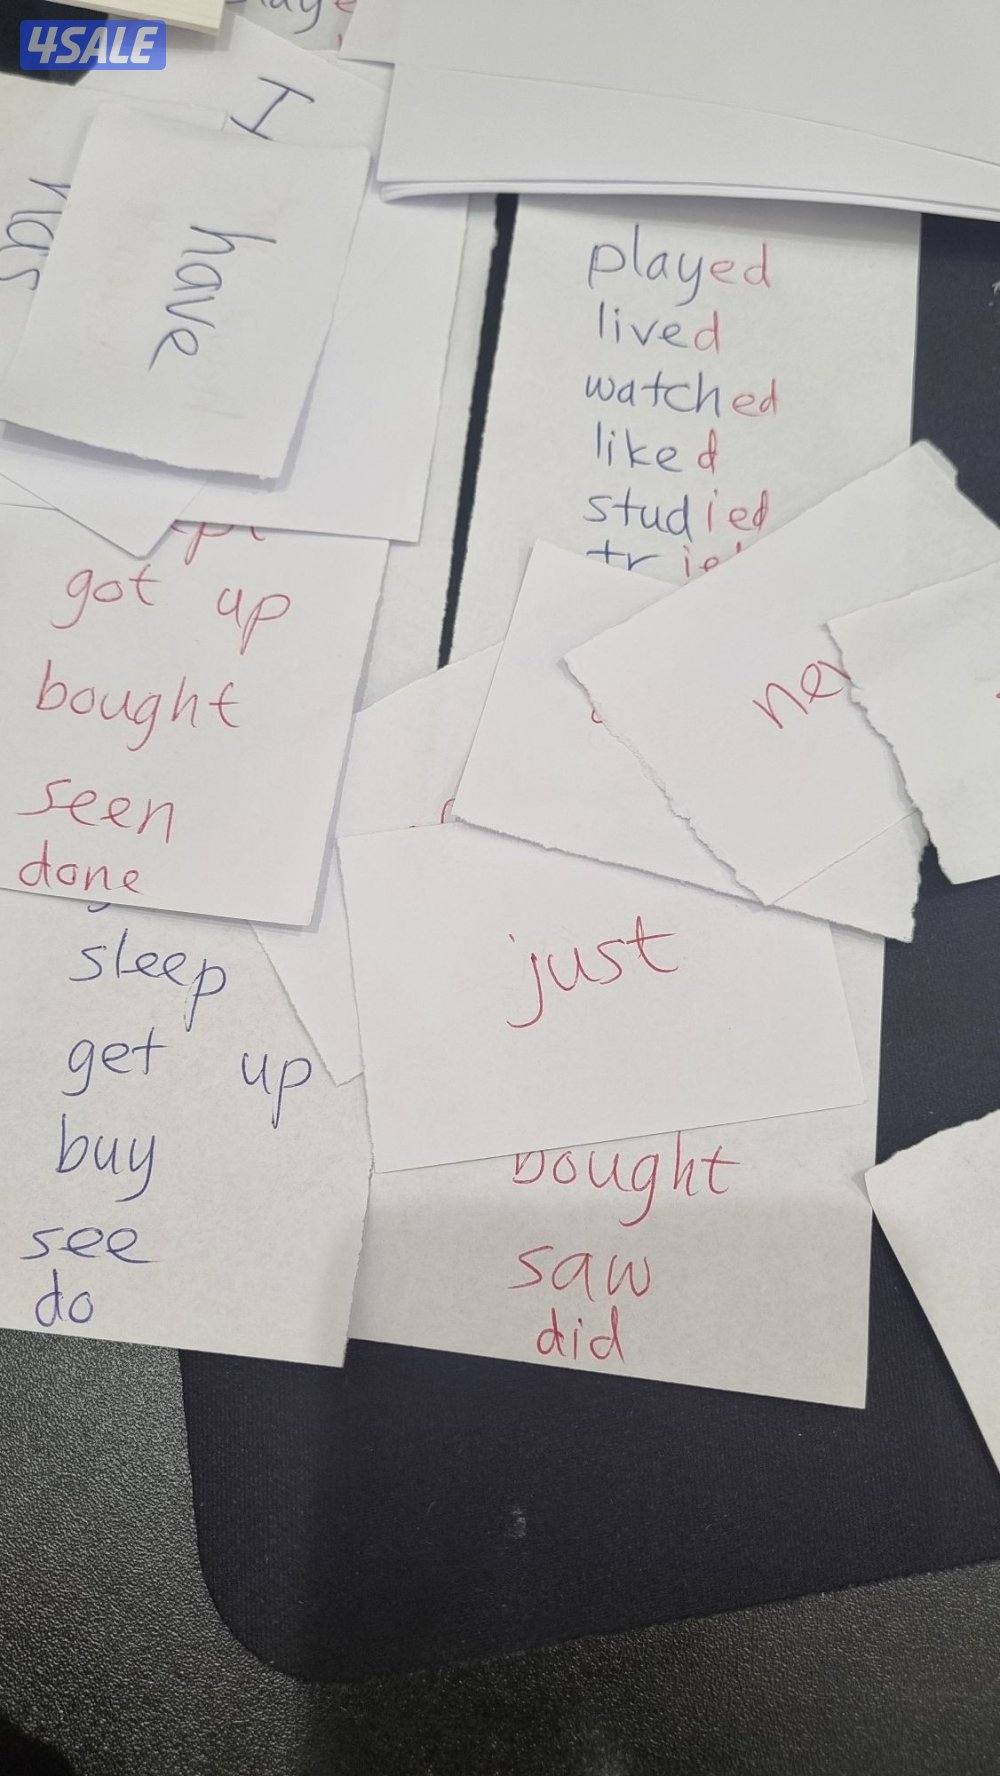 4SALE
I
have
has
played
lived
watched
liked
studied
got up
bought
seen
done
just
sleep
get up
buy
see
do
bought
saw
did